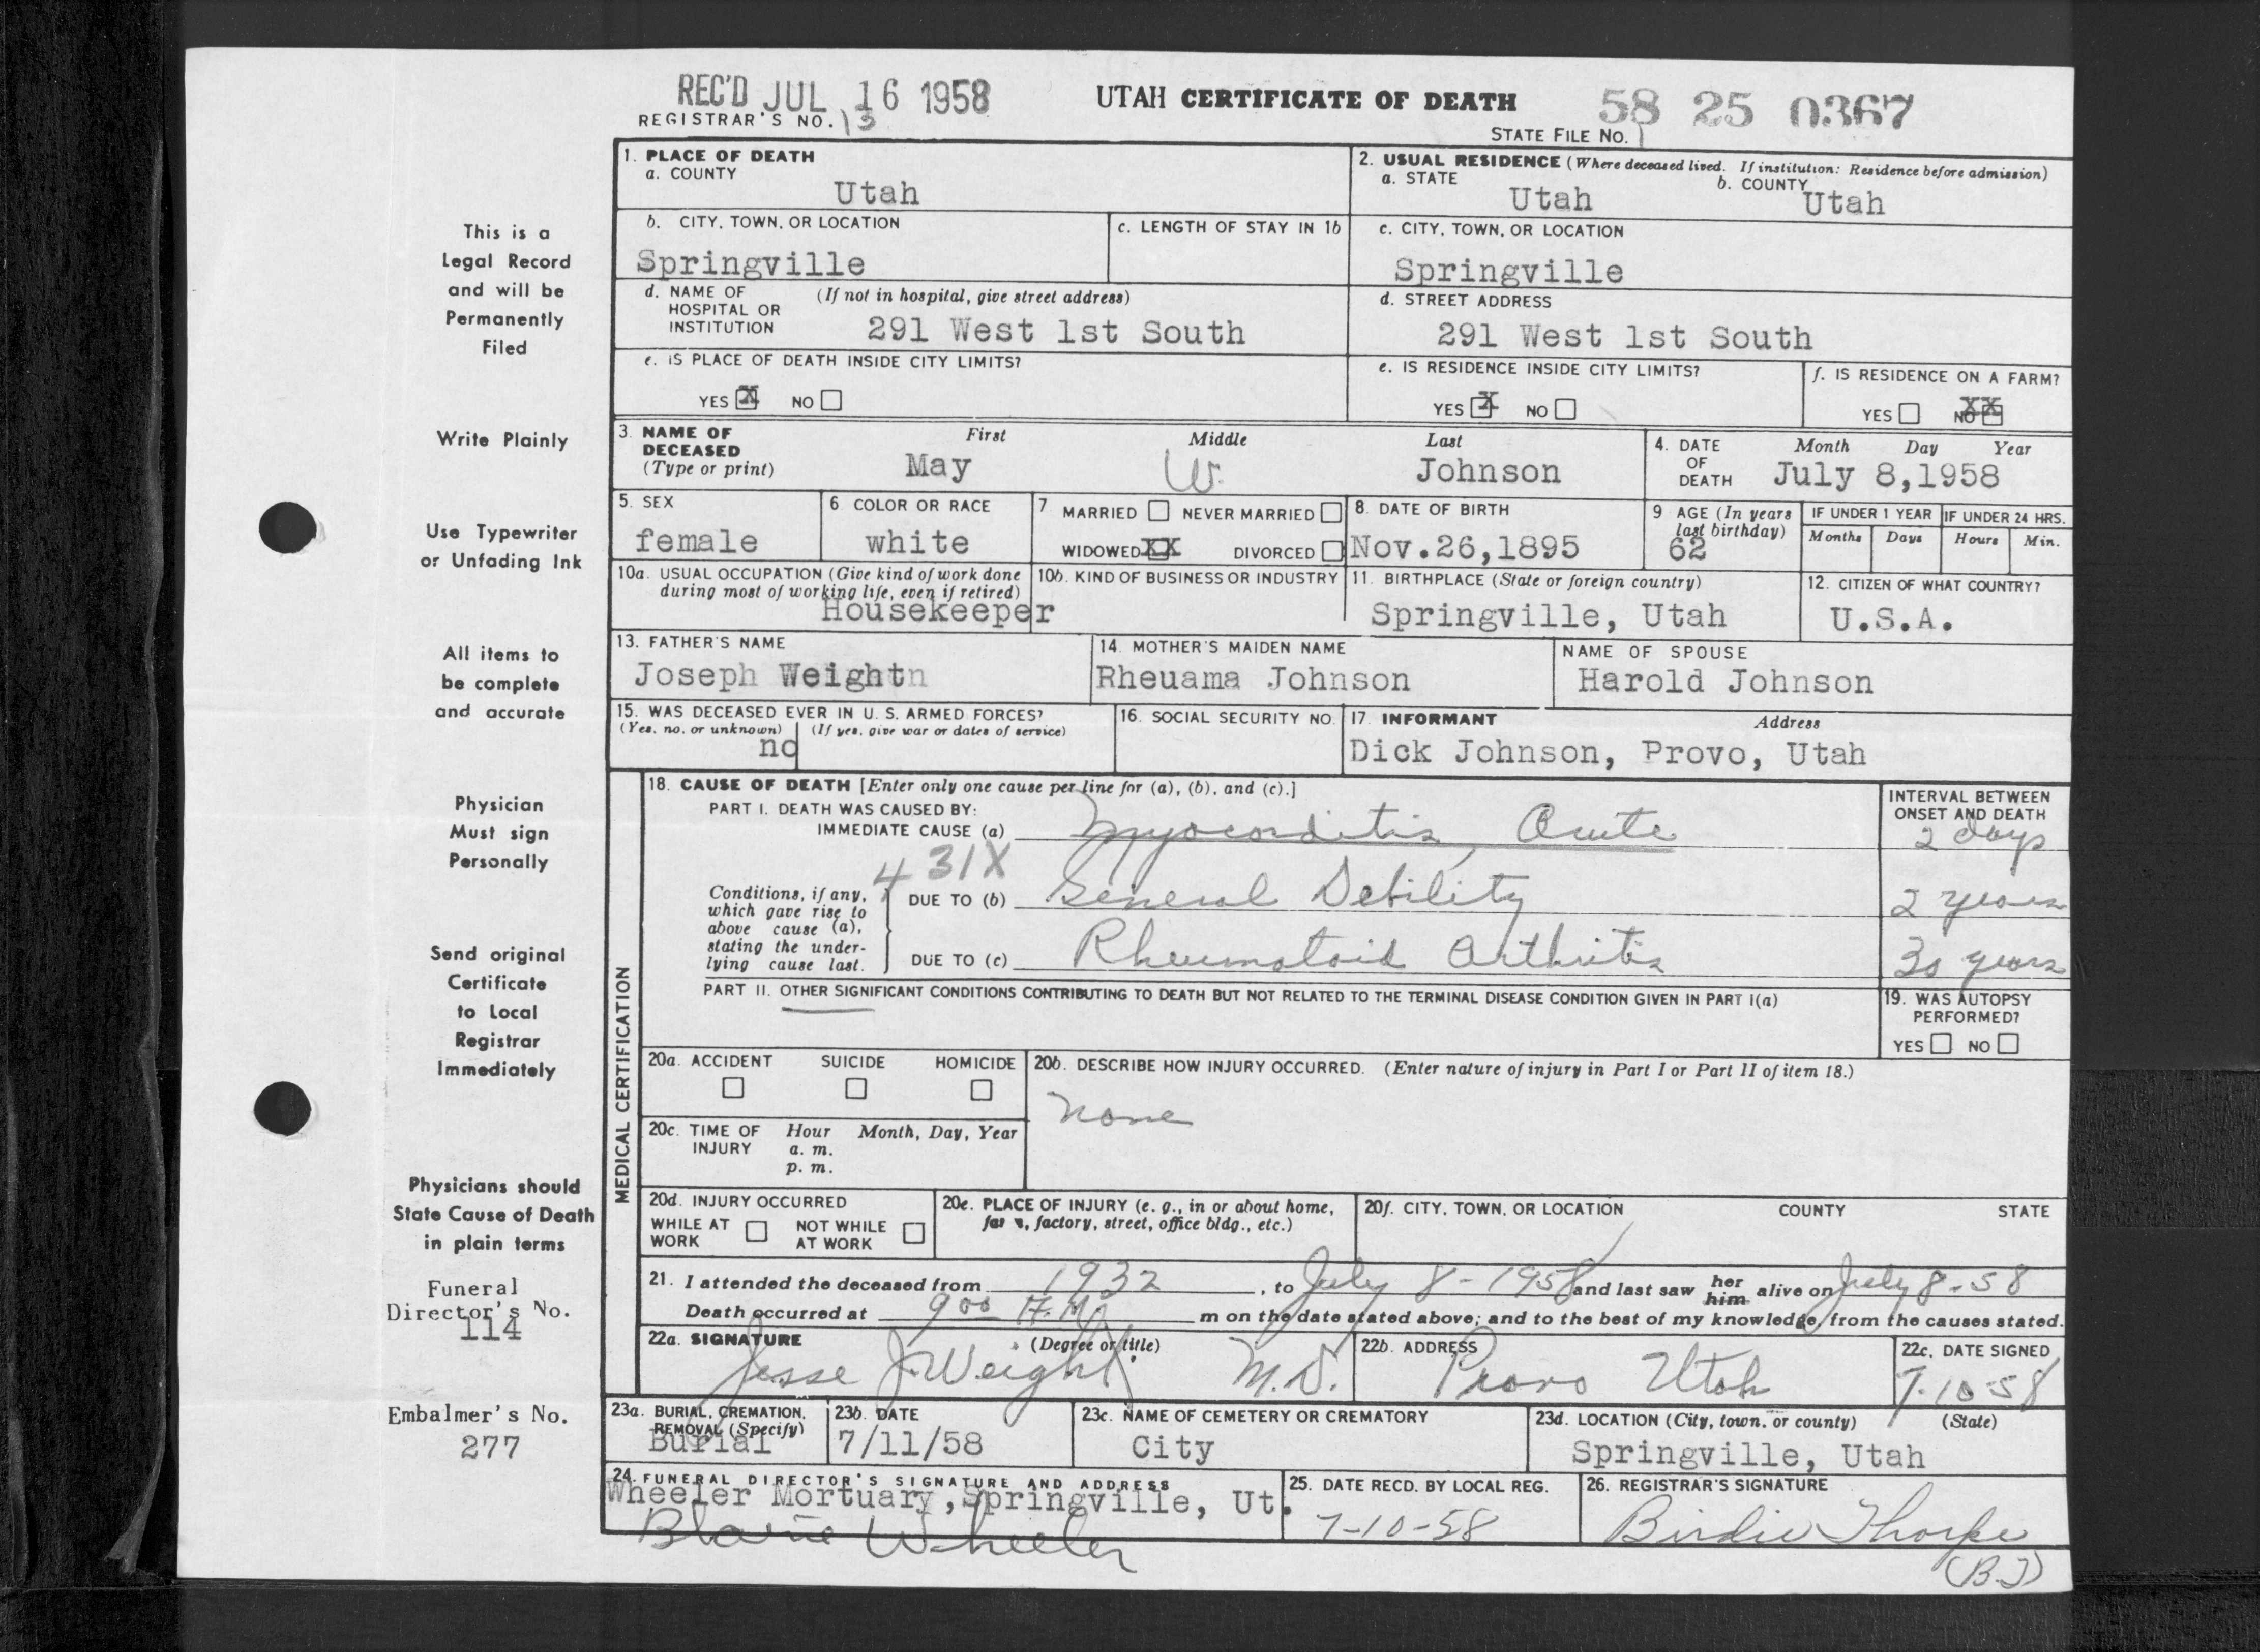 REC'D JUL 16 1958
UTAH CERTIFICATE OF DEATH
58 25 0367
REGISTRAR'S NO. 13
STATE FILE NO.
This is a
Legal Record
and will be
Permanently
Filed
Write Plainly
Use Typewriter
or Unfading Ink
All items to
be complete
and accurate
Physician
Must sign
Personally
Send original
Certificate
to Local
Registrar
Immediately
Physicians should
State Cause of Death
in plain terms
Funeral
Director's No.
114
Embalmer's No.
277
1. PLACE OF DEATH
a. COUNTY
Utah
2. USUAL RESIDENCE (Where deceased lived. If institution: Residence before admission)
a. STATE
Utah
b. COUNTY
Utah
b. CITY, TOWN, OR LOCATION
Springville
c. LENGTH OF STAY IN 1b
c. CITY, TOWN, OR LOCATION
Springville
d. NAME OF HOSPITAL OR INSTITUTION (If not in hospital, give street address)
291 West 1st South
d. STREET ADDRESS
291 West 1st South
e. IS PLACE OF DEATH INSIDE CITY LIMITS?
YES X NO
e. IS RESIDENCE INSIDE CITY LIMITS?
YES X NO
f. IS RESIDENCE ON A FARM?
YES NO XX
3. NAME OF DECEASED (Type or print)
First Middle Last
May W. Johnson
4. DATE OF DEATH
Month Day Year
July 8,1958
5. SEX
female
6 COLOR OR RACE
white
7 MARRIED NEVER MARRIED
WIDOWED XX DIVORCED
8. DATE OF BIRTH
Nov.26,1895
9 AGE (In years last birthday)
62
IF UNDER 1 YEAR
Months Days
IF UNDER 24 HRS.
Hours Min.
10a. USUAL OCCUPATION (Give kind of work done during most of working life, even if retired)
Housekeeper
10b. KIND OF BUSINESS OR INDUSTRY
11. BIRTHPLACE (State or foreign country)
Springville, Utah
12. CITIZEN OF WHAT COUNTRY?
U.S.A.
13. FATHER'S NAME
Joseph Weight
14. MOTHER'S MAIDEN NAME
Rheuama Johnson
NAME OF SPOUSE
Harold Johnson
15. WAS DECEASED EVER IN U. S. ARMED FORCES?
(Yes, no, or unknown) (If yes, give war or dates of service)
no
16. SOCIAL SECURITY NO.
17. INFORMANT Address
Dick Johnson, Provo, Utah
MEDICAL CERTIFICATION
18. CAUSE OF DEATH [Enter only one cause per line for (a), (b), and (c).]
PART I. DEATH WAS CAUSED BY:
IMMEDIATE CAUSE (a) Myocorditis, Acute
INTERVAL BETWEEN ONSET AND DEATH
2 days
431X
Conditions, if any, which gave rise to above cause (a), stating the underlying cause last.
DUE TO (b) General Debility
2 years
DUE TO (c) Rheumatoid Arthritis
30 years
PART II. OTHER SIGNIFICANT CONDITIONS CONTRIBUTING TO DEATH BUT NOT RELATED TO THE TERMINAL DISEASE CONDITION GIVEN IN PART I(a)
19. WAS AUTOPSY PERFORMED?
YES NO
20a. ACCIDENT SUICIDE HOMICIDE
20b. DESCRIBE HOW INJURY OCCURRED. (Enter nature of injury in Part I or Part II of item 18.)
None
20c. TIME OF INJURY Hour Month, Day, Year
a. m.
p. m.
20d. INJURY OCCURRED
WHILE AT WORK NOT WHILE AT WORK
20e. PLACE OF INJURY (e. g., in or about home, farm, factory, street, office bldg., etc.)
20f. CITY, TOWN, OR LOCATION COUNTY STATE
21. I attended the deceased from 1932, to July 8-1958 and last saw her him alive on July 8-58
Death occurred at 9 00 A.M. m on the date stated above; and to the best of my knowledge, from the causes stated.
22a. SIGNATURE (Degree or title)
Jesse J. Weight M.D.
22b. ADDRESS
Provo Utah
22c. DATE SIGNED
7-10-58
23a. BURIAL, CREMATION, REMOVAL (Specify)
Burial
23b. DATE
7/11/58
23c. NAME OF CEMETERY OR CREMATORY
City
23d. LOCATION (City, town, or county) (State)
Springville, Utah
24. FUNERAL DIRECTOR'S SIGNATURE AND ADDRESS
Wheeler Mortuary,Springville, Ut.
Blaine Wheeler
25. DATE RECD. BY LOCAL REG.
7-10-58
26. REGISTRAR'S SIGNATURE
Birdie Thorpe
(B.J)